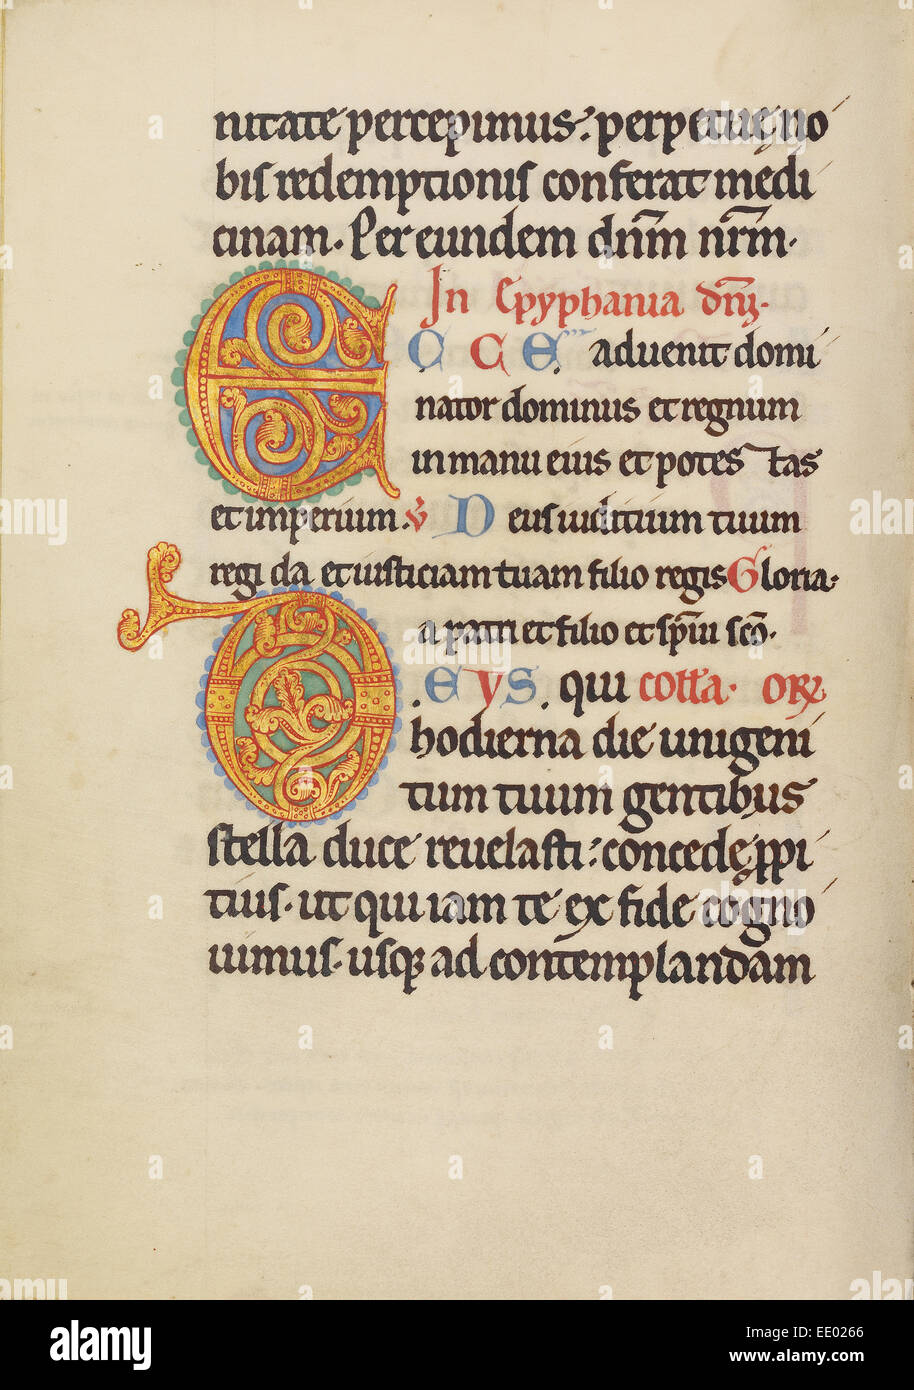 nitate percepimus: perpetuę no
bis redemptionis conferat medi
cinam. Per eundem dnm nrm.
In Epyphania dni.
E C C E aduenit domi
nator dominus et regnum
in manu eius et potes tas
et imperium. V D eus iuditium tuum
regi da et iusticiam tuam filio regis Gloria.
a patri et filio et spiui sco.
D .E Y S. qui coll̄a. OR
hodierna die unigeni
tum tuum gentibus
stella duce reuelasti: concede ppi
tius. ut qui iam te ex fide cogno
uimus. usq; ad contemplandam
alamy
Image ID: EE0266
www.alamy.com